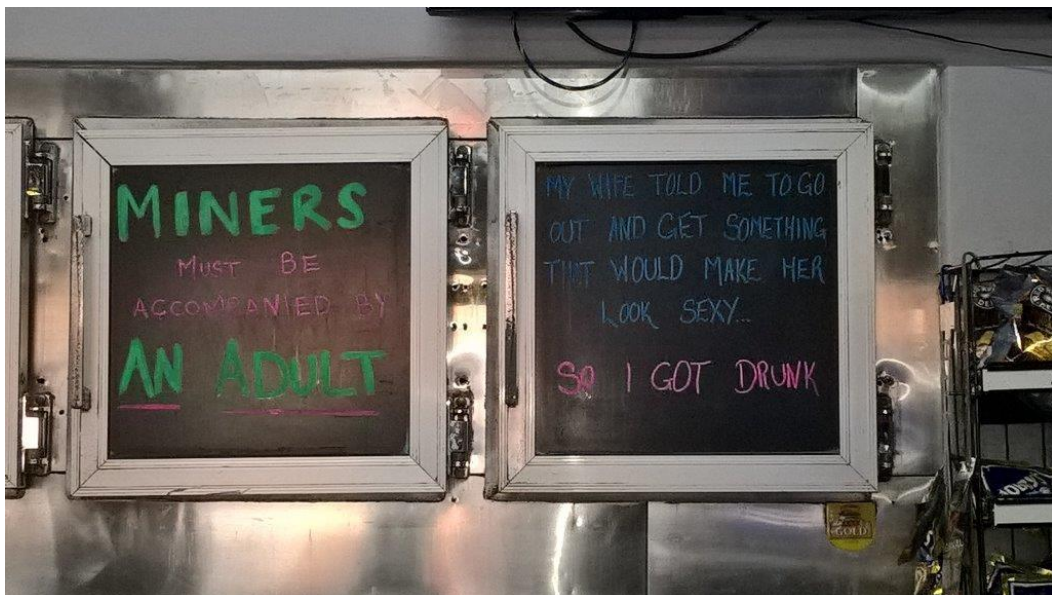 MINERS
MUST BE
ACCOMPANIED BY
AN ADULT
MY WIFE TOLD ME TO GO
OUT AND GET SOMETHING
THAT WOULD MAKE HER
LOOK SEXY...
SO I GOT DRUNK
GOLD